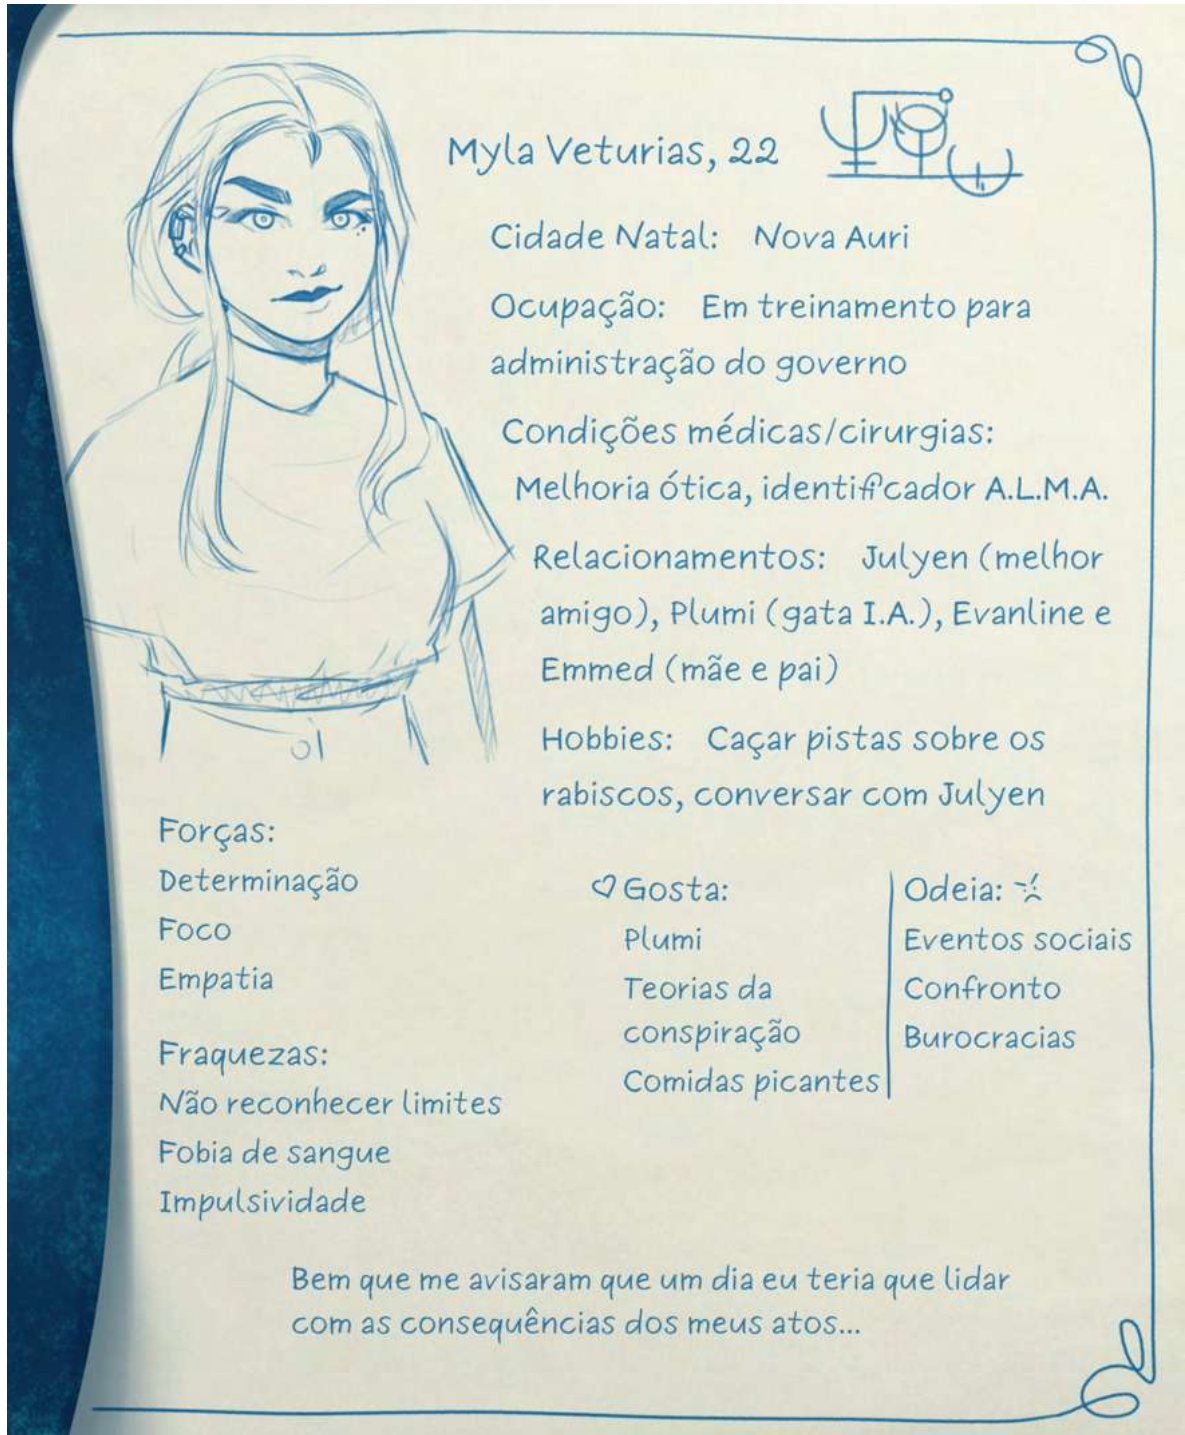 Myla Veturias, 22
Cidade Natal: Nova Auri
Ocupação: Em treinamento para
administração do governo
Condições médicas/cirurgias:
Melhoria ótica, identificador A.L.M.A.
Relacionamentos: Julyen (melhor
amigo), Plumi (gata I.A.), Evanline e
Emmed (mãe e pai)
Hobbies: Caçar pistas sobre os
rabiscos, conversar com Julyen
Forças:
Determinação
Foco
Empatia
Fraquezas:
Não reconhecer limites
Fobia de sangue
Impulsividade
Gosta:
Plumi
Teorias da
conspiração
Comidas picantes
Odeia:
Eventos sociais
Confronto
Burocracias
Bem que me avisaram que um dia eu teria que lidar
com as consequências dos meus atos...